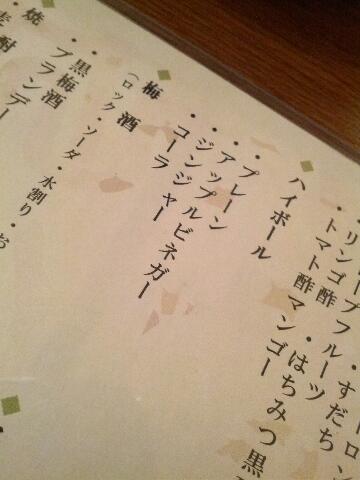 ーロン
ープフルーツ・すだち
・リンゴ酢・はちみつ黒
・トマト酢マンゴー
ハイボール
・プレーン
・アップルビネガー
・ジンジャー
・コーラ
梅酒
(ロック・ソーダ・水割り・お
・黒梅酒
・ブランデー
焼酎
・麦